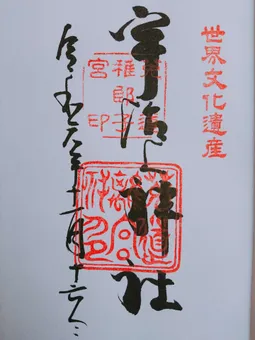 世界文化遺産
宇治上神社
菟道
稚郎子
宮印
令和元年十一月十六日